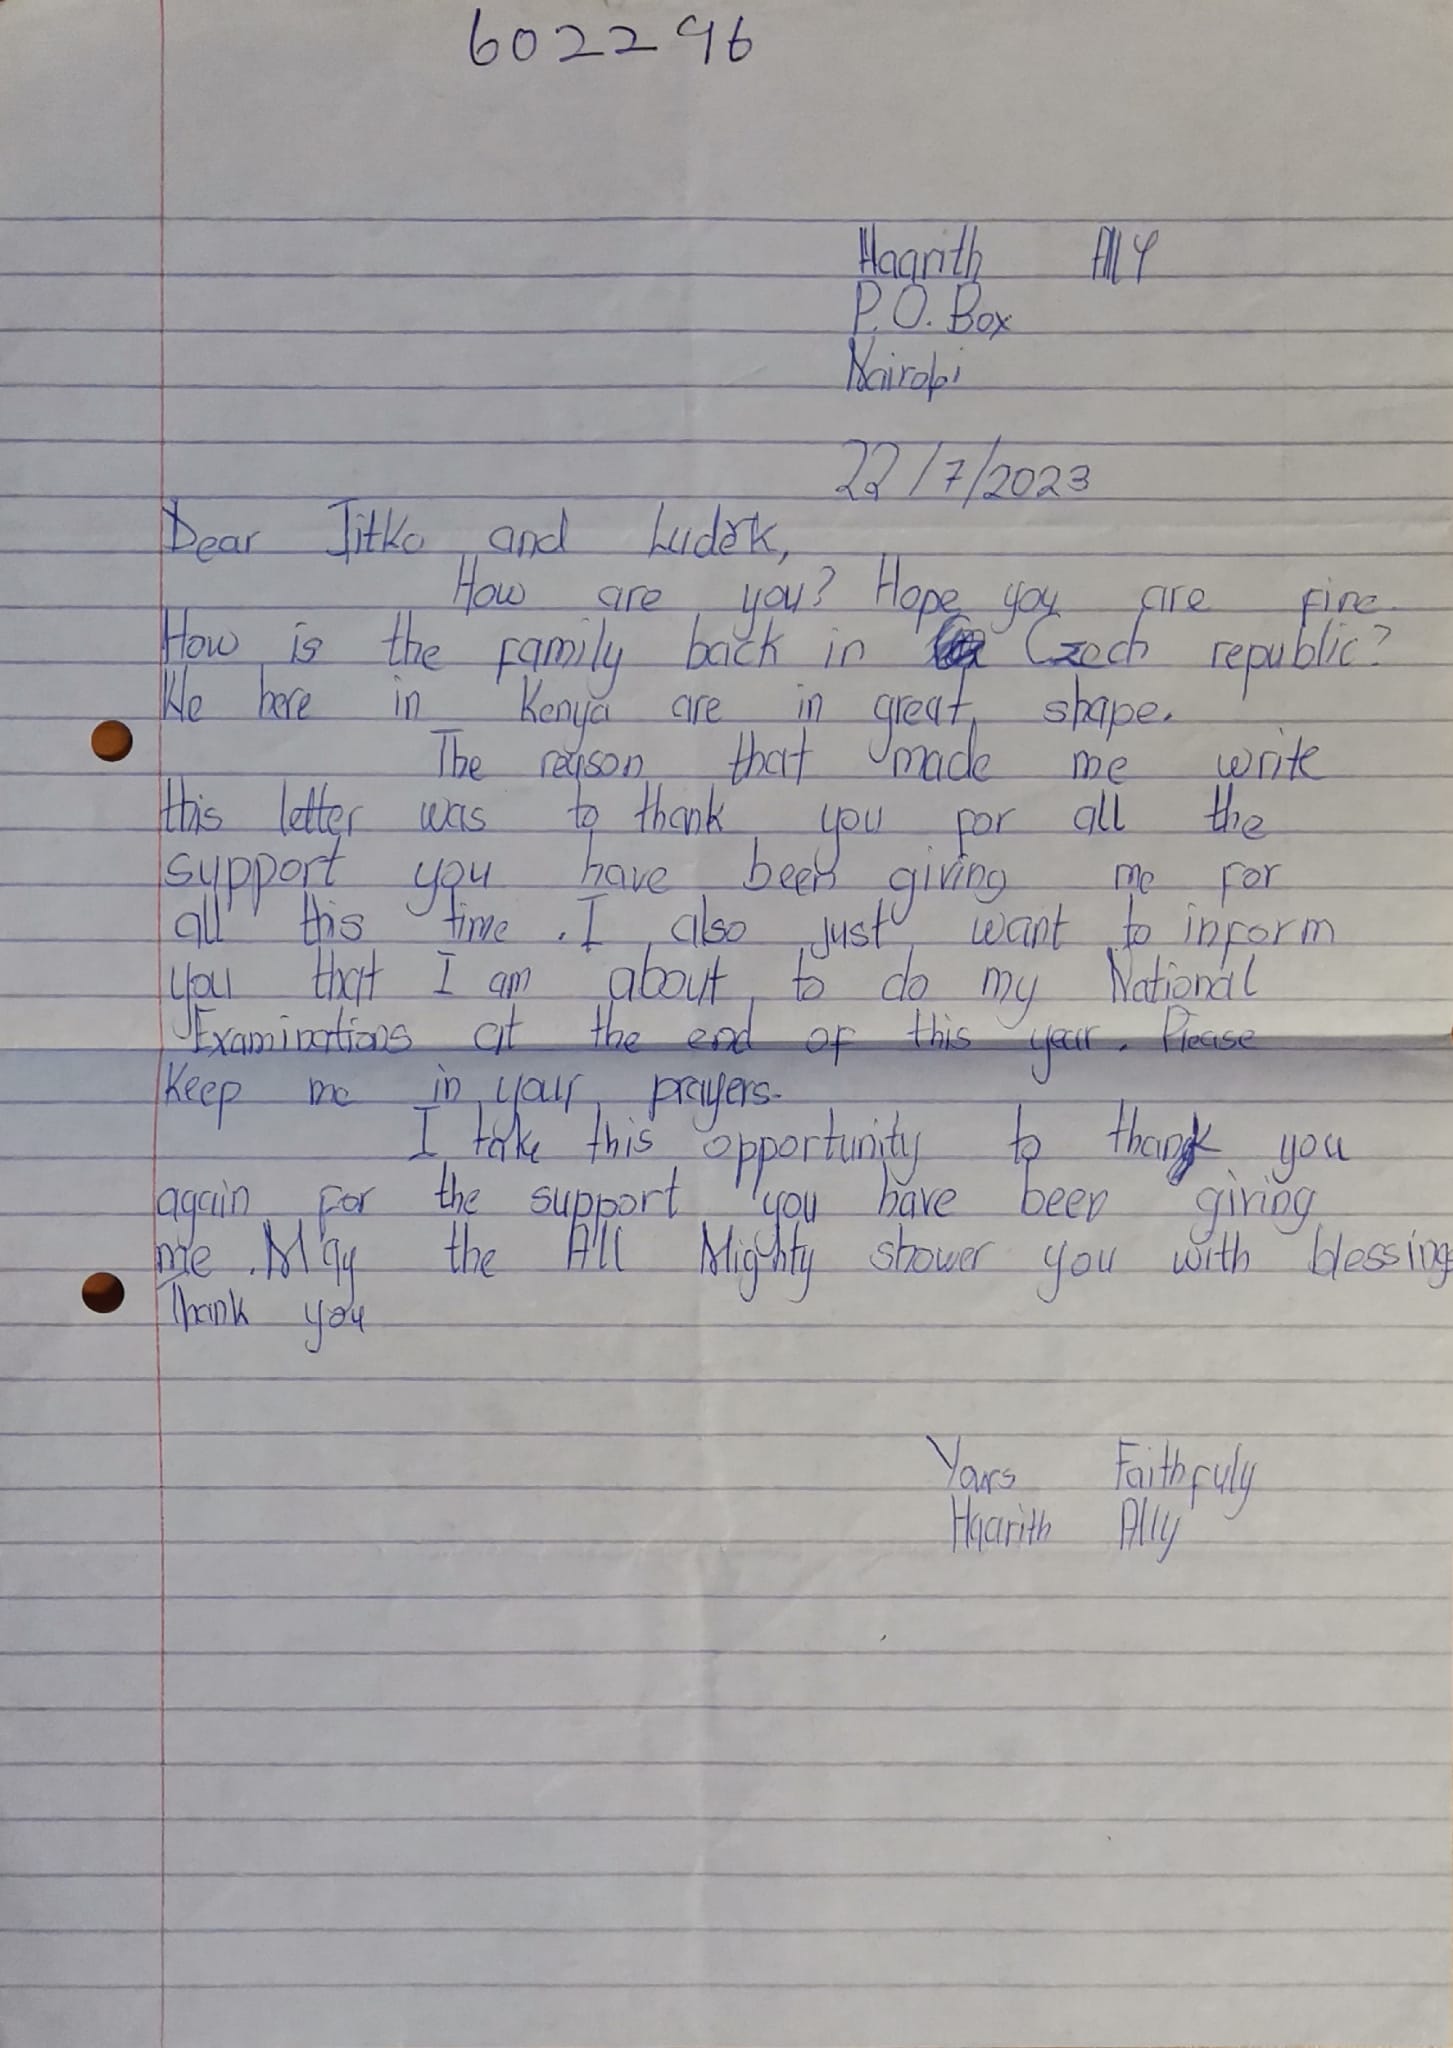 602296
Haarith Ally
P.O. Box
Nairobi
22/7/2023
Dear Jitka and Luděk,
How are you? Hope you are fine.
How is the family back in Czech republic?
We here in Kenya are in great shape.
The reason that made me write
this letter was to thank you for all the
support you have been giving me for
all this time. I also just want to inform
you that I am about to do my National
Examinations at the end of this year. Please
Keep me in your prayers.
I take this opportunity to thank you
again for the support you have been giving
me. May the All Mighty shower you with blessing
Thank you
Yours Faithfuly
Haarith Ally